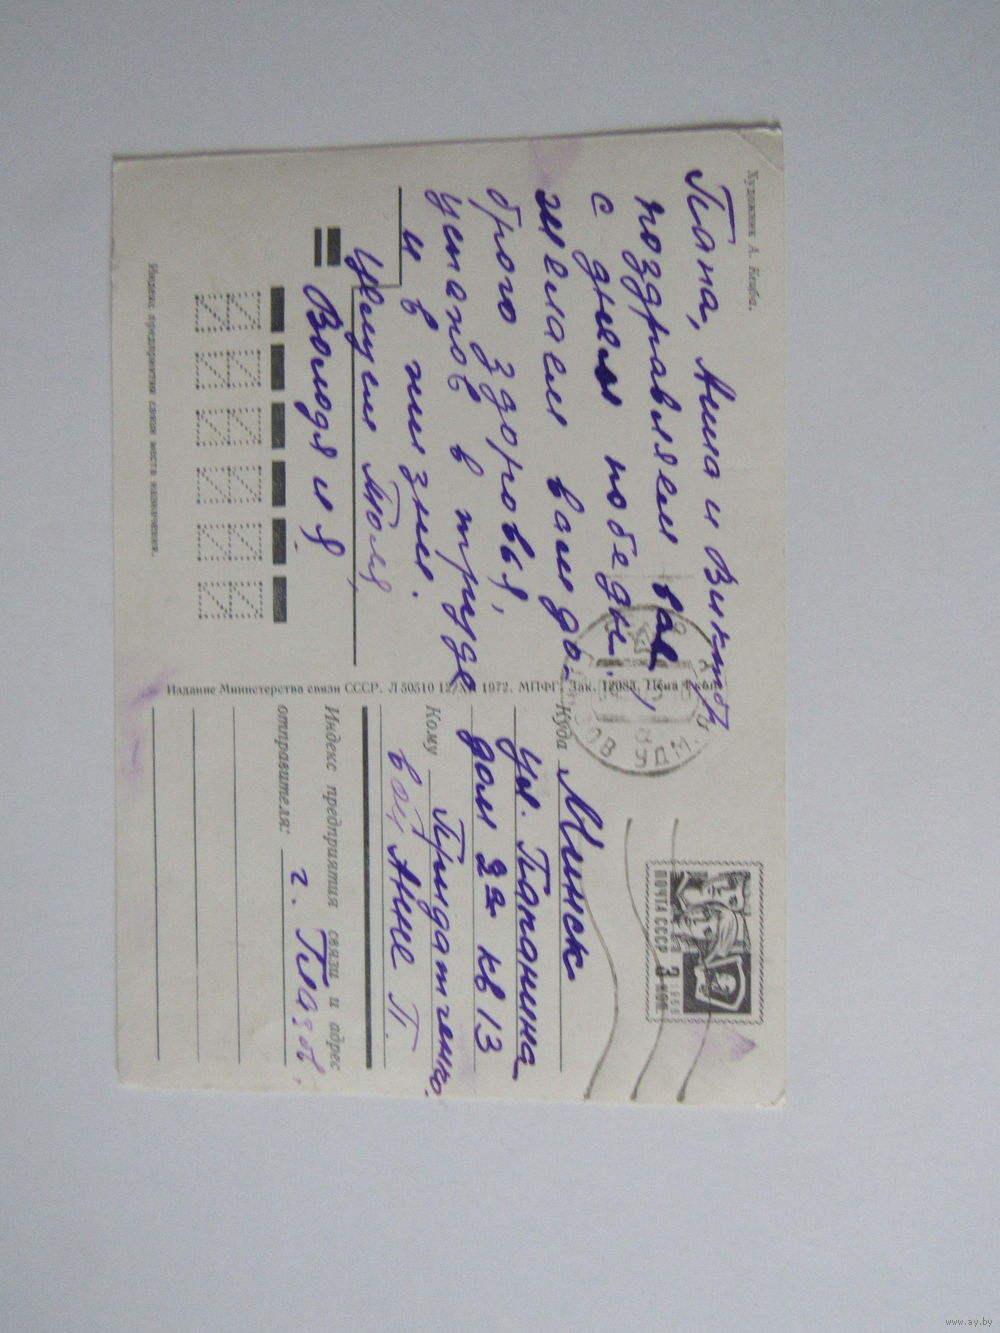 Художник А. Кецба.
Папа, Анна и Виктор
поздравляем вас
с днем победы,
желаем вам до-
брого здоровья,
успехов в труде
и в жизни.
Целуем Толя,
Володя и я
Индекс предприятия связи места назначения.
Издание Министерства связи СССР. Л 50510 12/XII 1972. МПФГ. Зак. Цена 4 коп.
ПОЧТА СССР 3 КОП.
1966
Куда Минск
ул. Папанина
дом 22 кв 13
Кому Придатченко
вой Анне П.
Индекс предприятия связи и адрес
отправителя:
г. Глазов.
www.ay.by